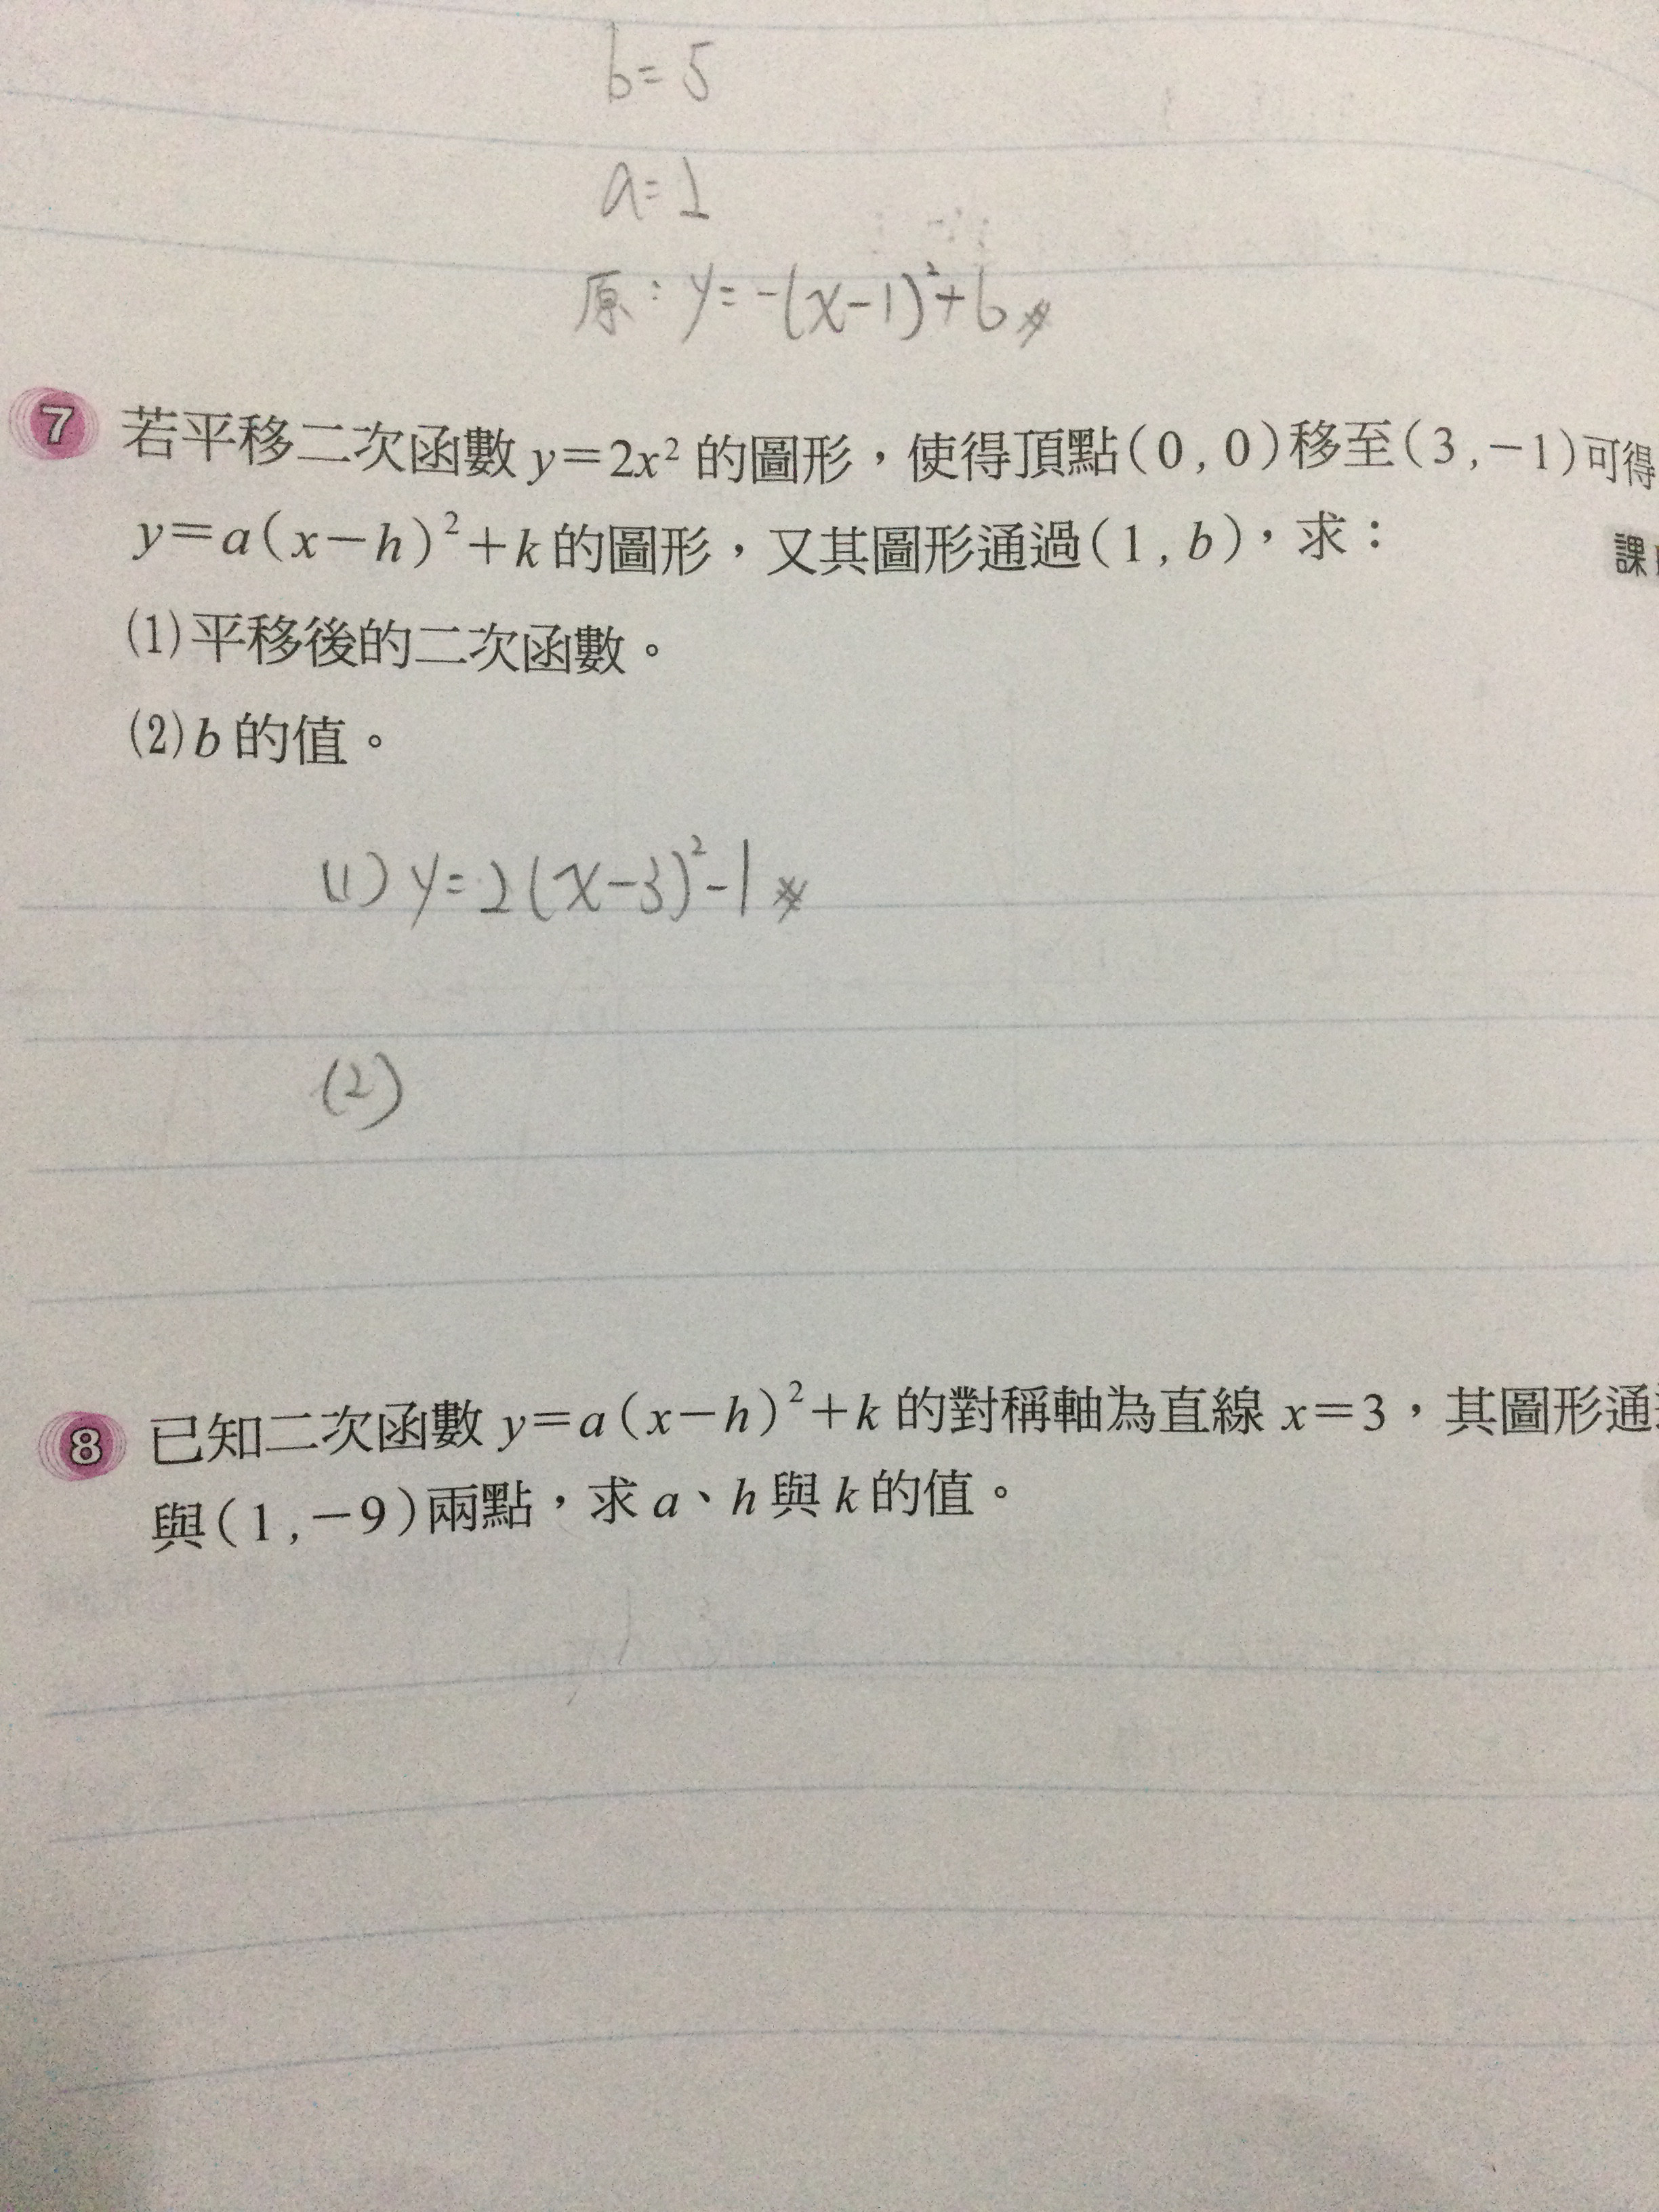 b=5
a=1
原：y=-(x-1)²+6
7 若平移二次函數 y=2x² 的圖形，使得頂點(0,0)移至(3,-1)可得
y=a(x-h)²+k 的圖形，又其圖形通過(1,b)，求：
課
(1)平移後的二次函數。
(2)b 的值。
(1) y=2(x-3)²-1
(2)
8 已知二次函數 y=a(x-h)²+k 的對稱軸為直線 x=3，其圖形通
與(1,-9)兩點，求 a、h 與 k 的值。